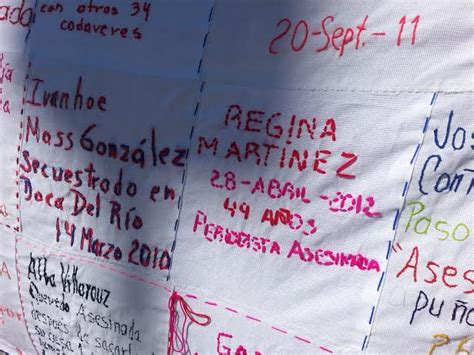 con otros 34
cadaveres
20-Sept.-11
Ivanhoe
Mass González
secuestrado en
Boca Del Río
14 Marzo 2010
REGINA
MARTÍNEZ
28-ABRIL-2012
49 AÑOS
PERIODISTA ASESINADA
Paso
"Ases
puñ
Alba Villarouz
Quevedo Asesinada
después de
su casa